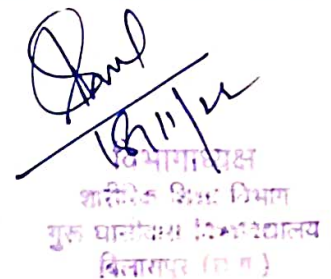 18/11/22
विभागाध्यक्ष
शारीरिक शिक्षा विभाग
गुरू घासीदास विश्वविद्यालय
बिलासपुर (छ.ग.)